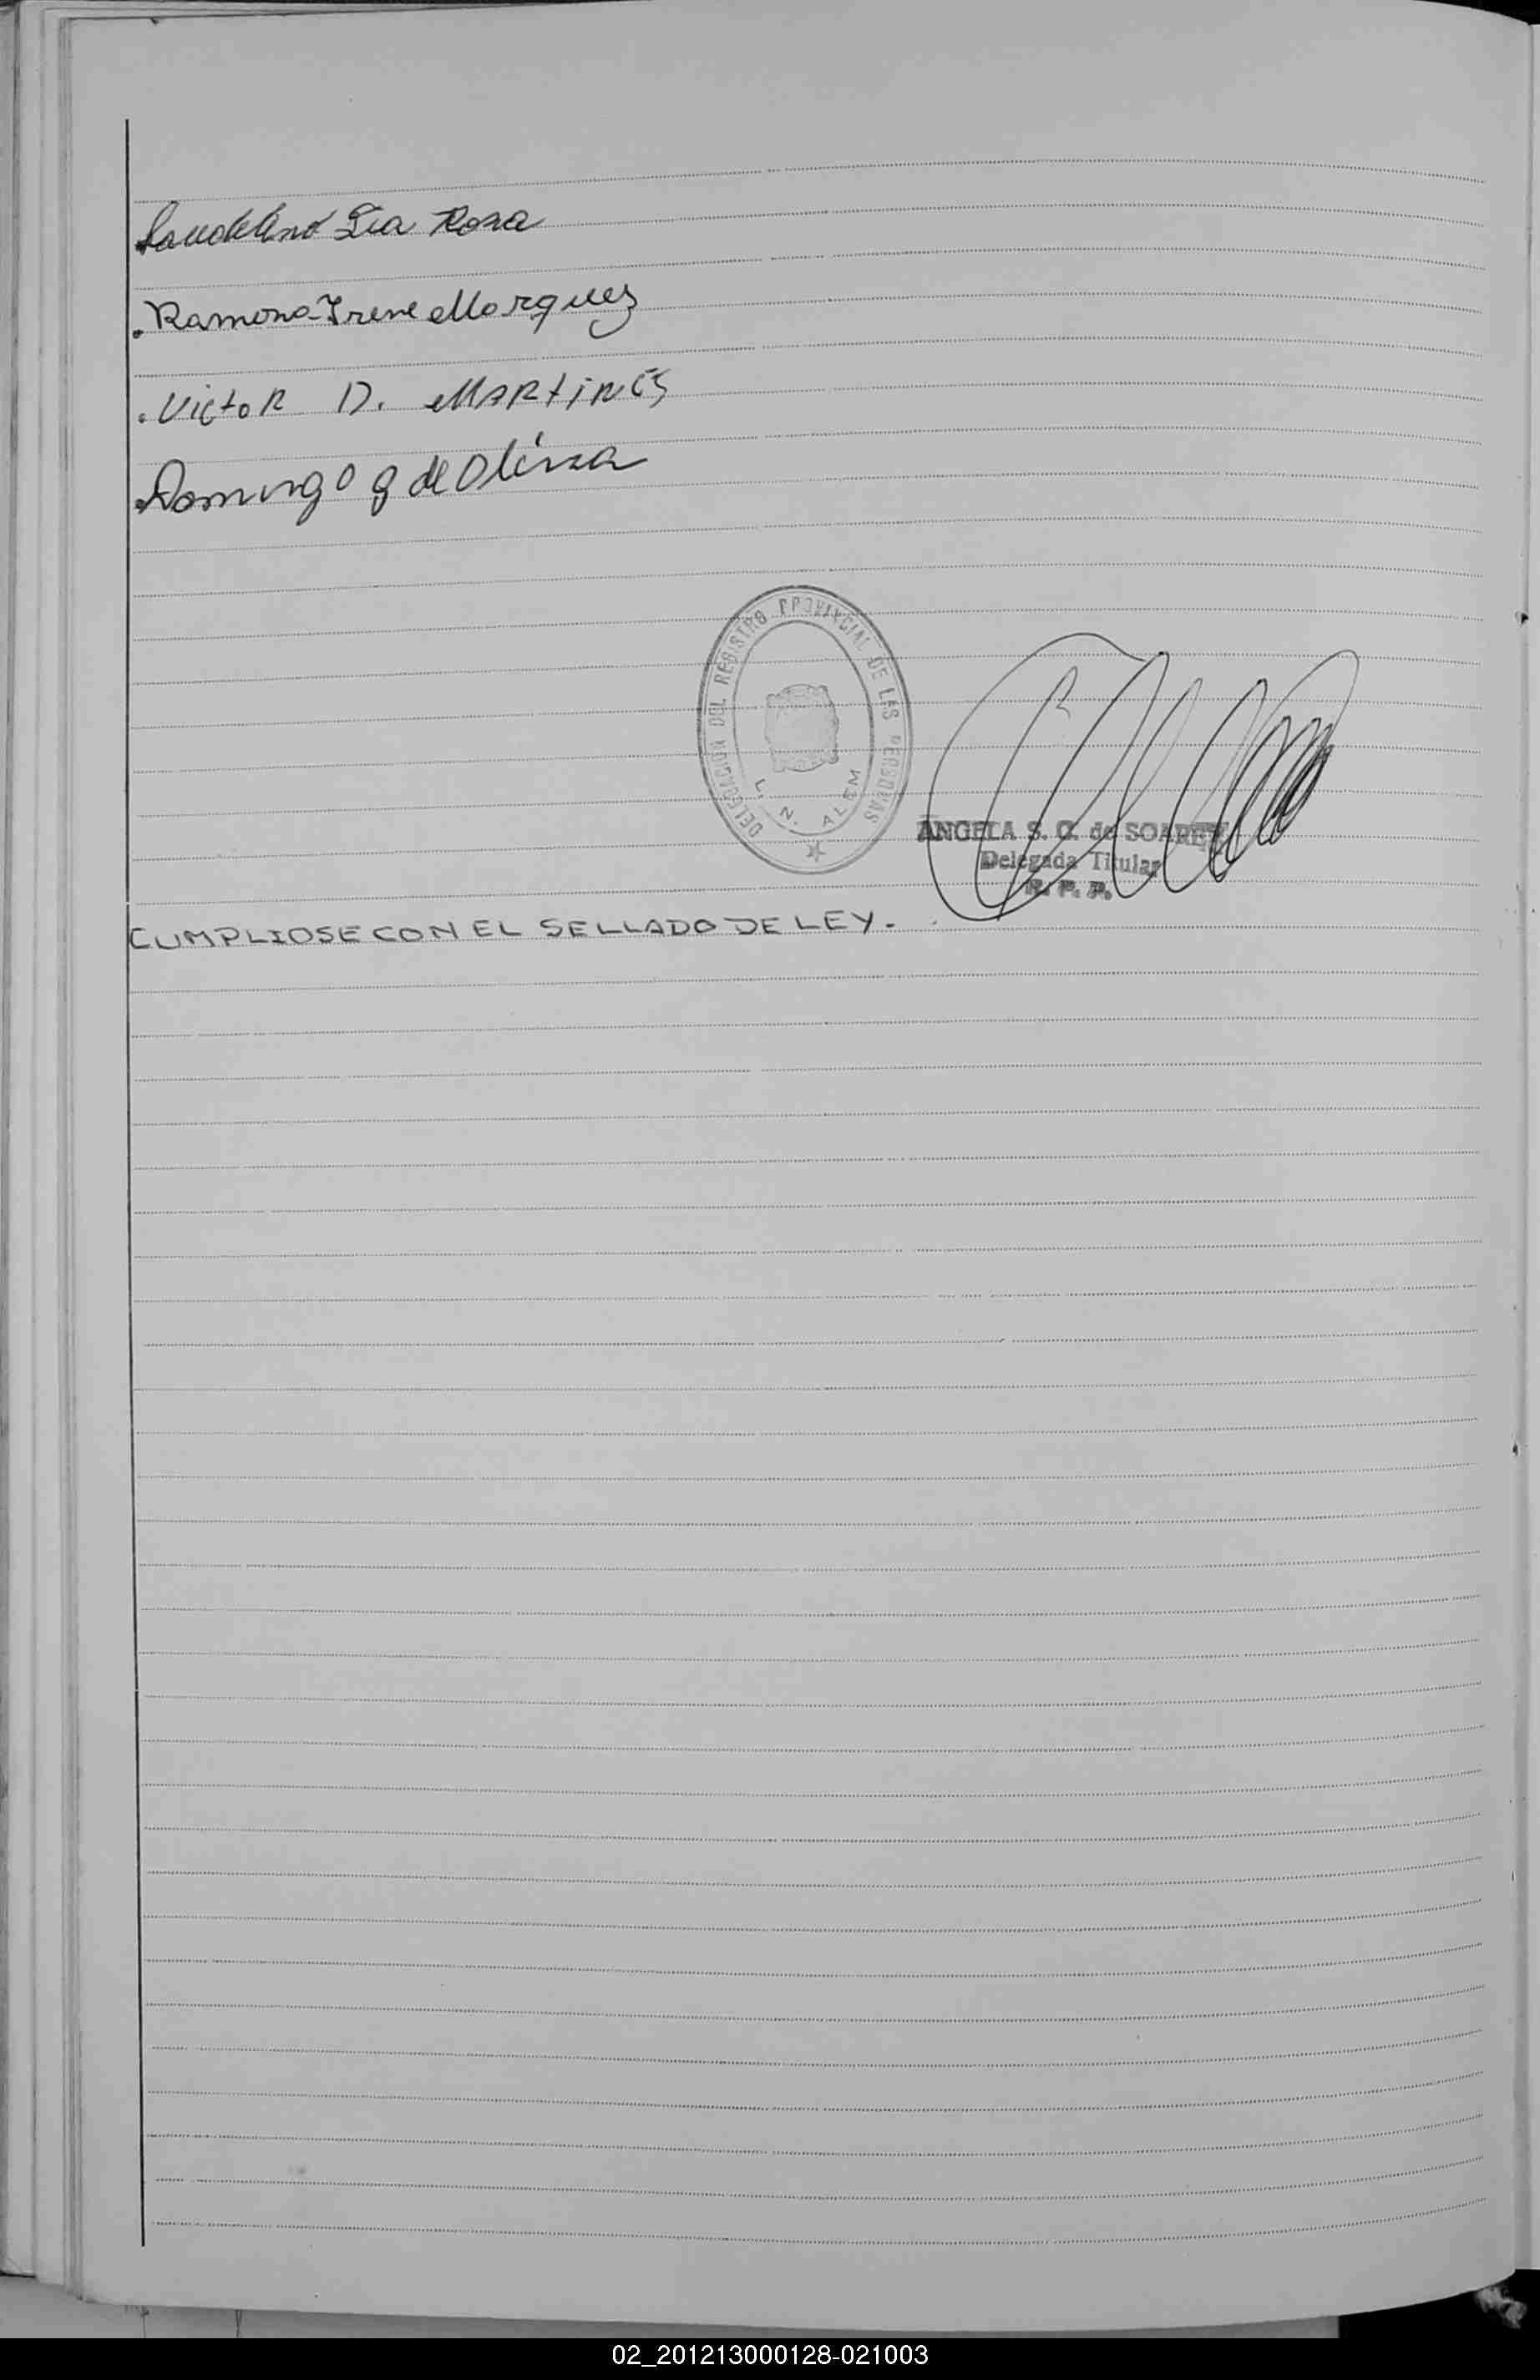 Ramona Irene Marquez
Victor D. MARTINES
Domingo g de Oliveira
DELEGACION DEL REGISTRO PROVINCIAL DE LAS PERSONAS
L. N. ALEM
ANGELA S. G. de SOAREZ
Delegada Titular
R. P. P.
CUMPLIOSE CON EL SELLADO DE LEY.
02_201213000128-021003